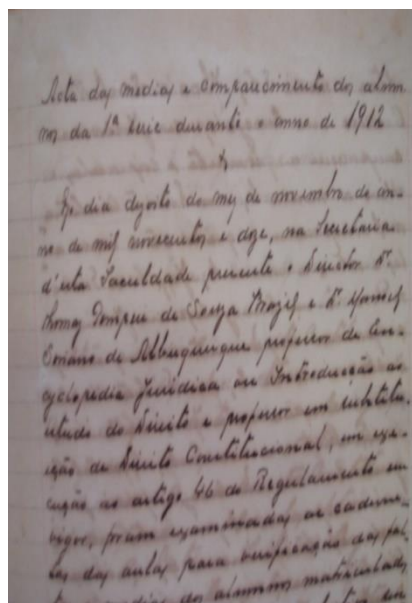 Acta das medias e comparecimento dos alum-
nos da 1ª serie durante o anno de 1912
Ao dia dezoito do mez de novembro do an-
no de mil novecentos e doze, na Secretaria
d'esta Faculdade presente o Director Dr.
Thomaz Pompeu de Souza Brazil e Dr. Manoel
Soriano de Albuquerque professor de En-
cyclopedia Juridica ou Introducção ao
estudo do Direito e professor em substitui-
ição de Direito Constitucional, em exe-
cução ao artigo 46 do Regulamento em
vigor, foram examinadas as cadernetas
das aulas para verificação das fal-
dos alumnos matriculados